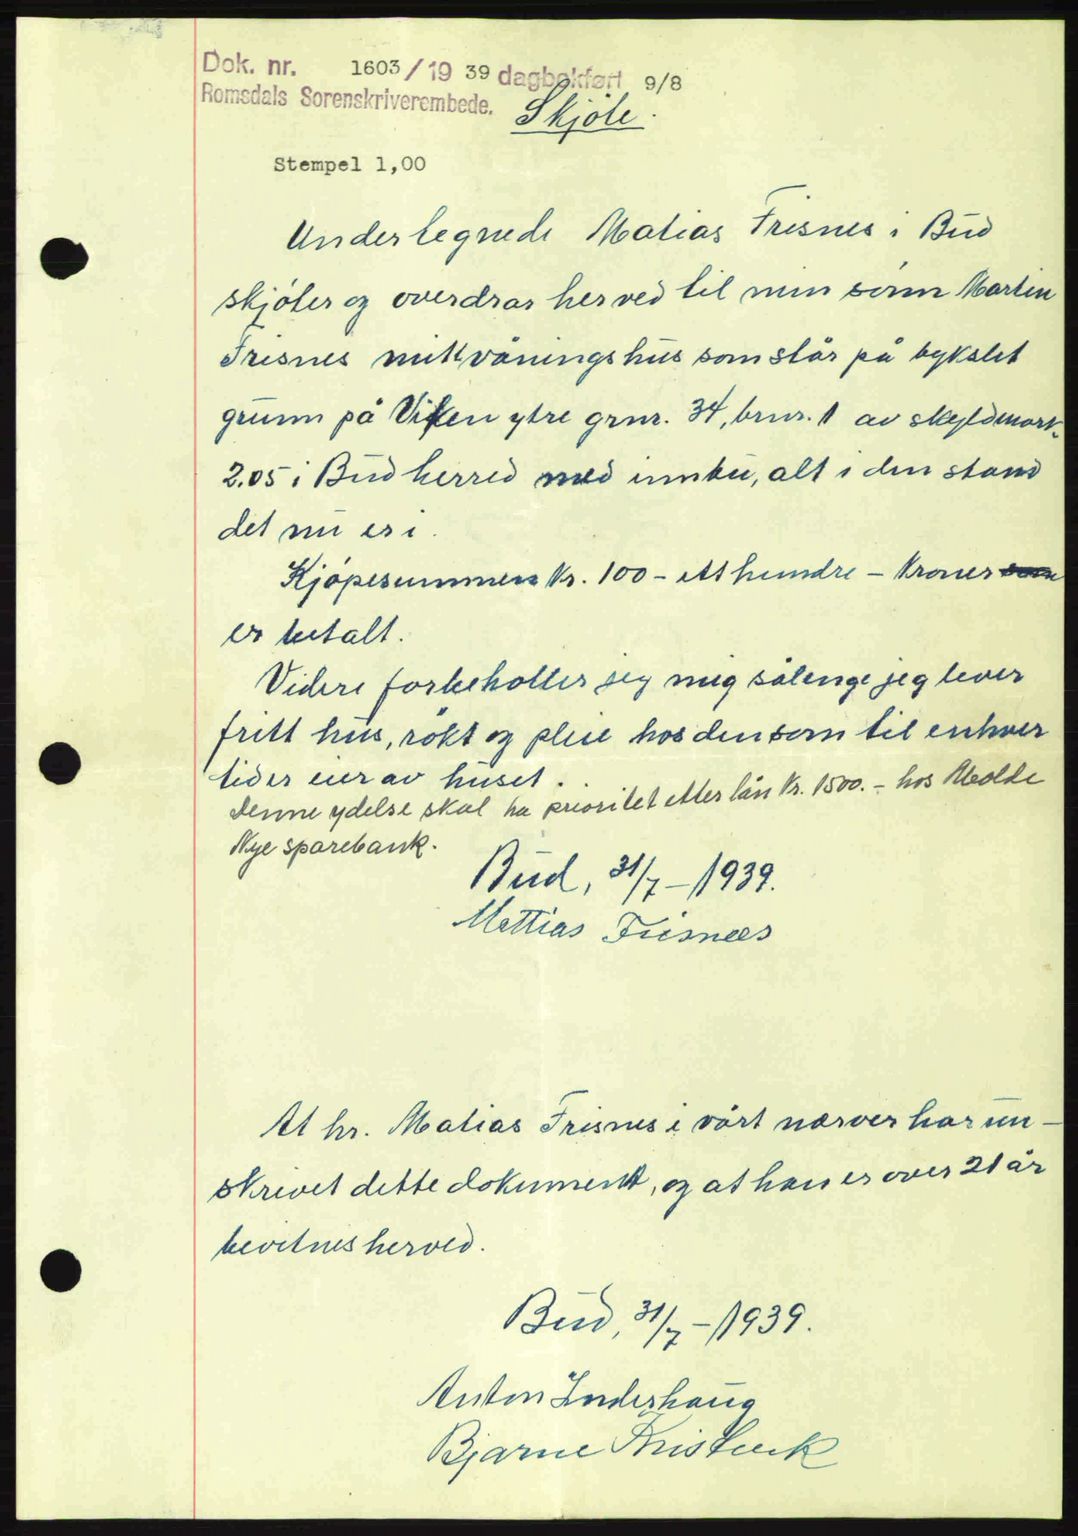 Dok. nr. 1603/1939 dagbokført 9/8
Romsdals Sorenskriverembede.
Skjöte.
Stempel 1,00
Undertegnede Matias Frisnes i Bud
skjöter og overdrar herved til min sönn Martin
Frisnes mitt våningshus som står på bykslet
grunn på Viken ytre grnr. 34, brnr. 1 av skyldmark
2.05 i Bud herred med innbu, alt i den stand
det nu er i.
Kjöpesummen Kr. 100 - ett hundre - Kroner
er betalt.
Videre forbeholter jeg mig sålenge jeg lever
fritt hus, rökt og pleie hos den som til enhver
tid er eier av huset.
Denne ydelse skal ha prioritet etter lån Kr. 1500.- hos Molde
Nye sparebank.
Bud, 31/7 - 1939.
Mattias Frisnees
At hr. Matias Frisnes i vårt nærver har un-
skrevet dette dokument, og at han er over 21 år
bevitnes herved.
Bud, 31/7 - 1939.
Anton Inderhaug
Bjarne